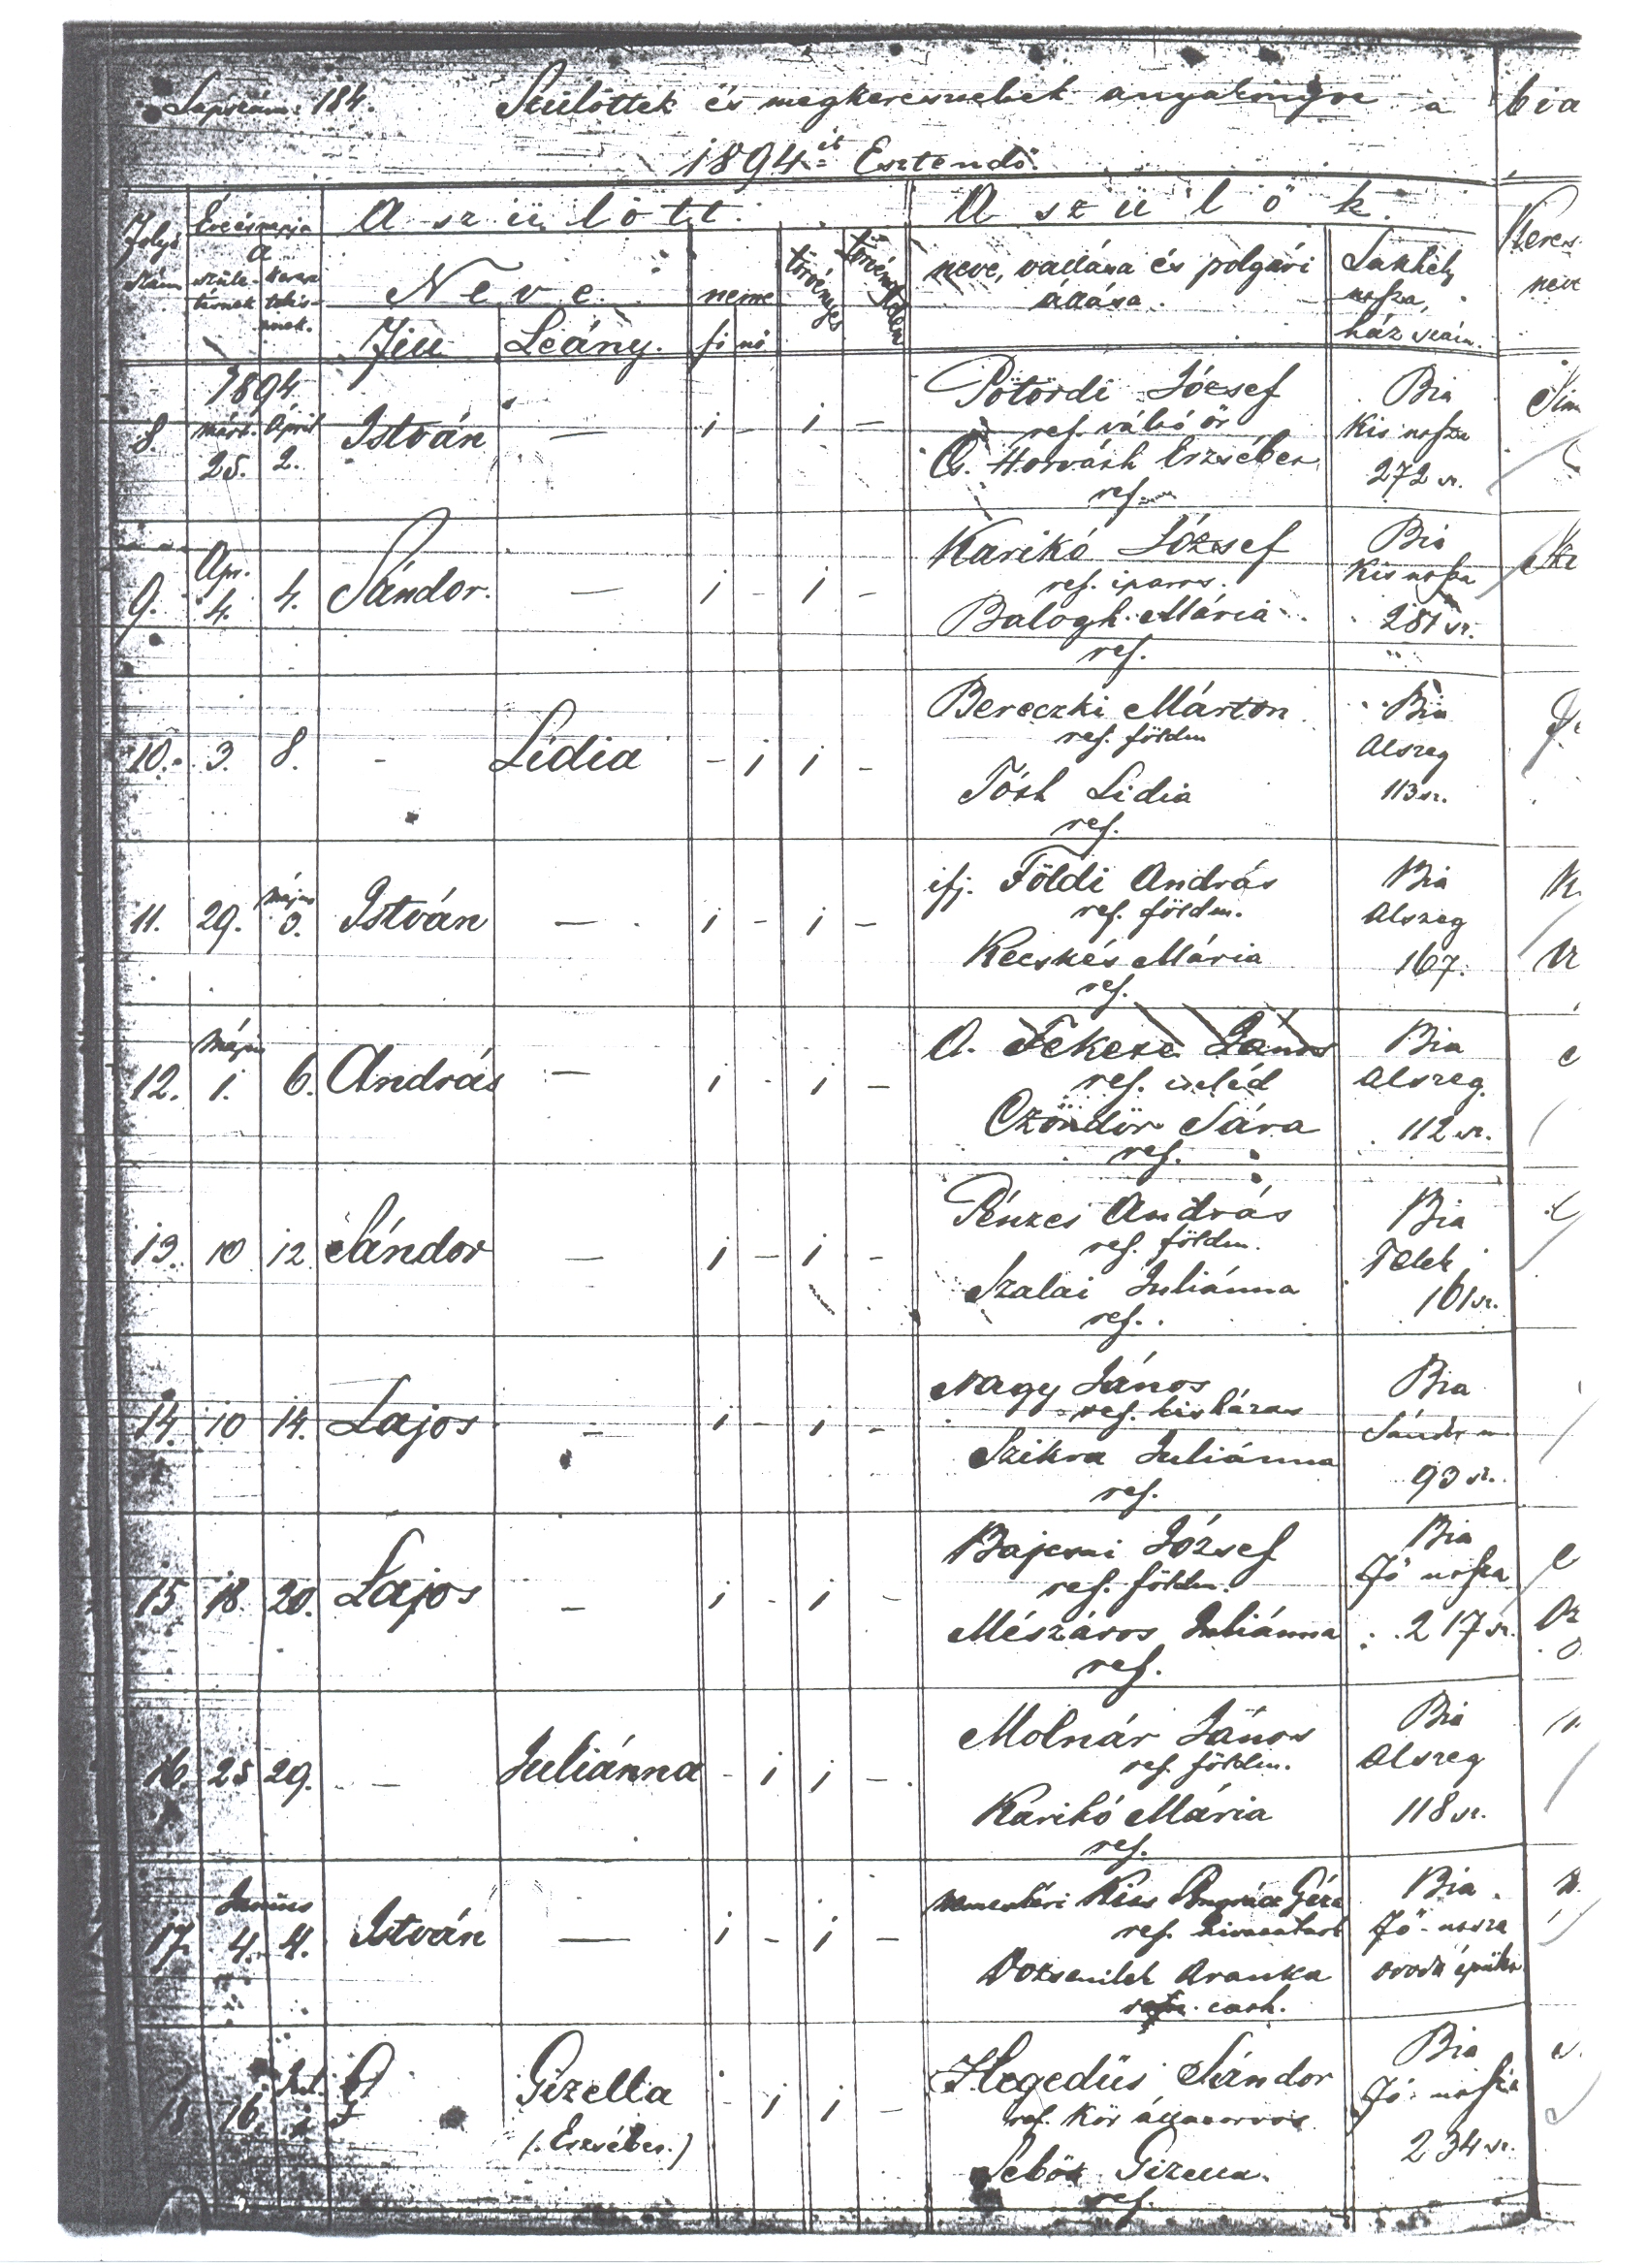 Lapszám: 184. Szülöttek és megkereszteltek anyakönyve a bia
1894ik Esztendő.
Folyó szám
Év és napja
A
születésnek
keresztelésnek.
A szülött.
Neve
Fiú
Leány.
neme
fi nő
törvényes
törvénytelen
A szülők.
neve, vallása és polgári
állása.
Lakhely
utsza,
ház szám.
Keres
neve
1894
8. márt. 25. April 2. István — 1 - 1 -
Pötördi József
ref. váltó őr
Cs. Horváth Erzsébet
ref.
Bia
Kis utsza
272 sz.
9. Apr. 4. 4. Sándor. — 1 - 1 -
Karikó József
ref. iparos.
Balogh Mária
ref.
Bia
Kis utsza
281 sz.
10. 3. 8. - Lidia - 1 1 -
Bereczki Márton
ref. földm
Tóth Lidia
ref.
Bia
Alszeg
113 sz.
11. 29. Május 3. István — 1 - 1 -
ifj. Földi András
ref. földm.
Kecskés Mária
ref.
Bia
Alszeg
167.
12. Május 1. 6. András — 1 - 1 -
A. Fekete János
ref. cseléd
Czöndör Sára
ref.
Bia
Alszeg
112 sz.
13. 10 12 Sándor — 1 - 1 -
Pénzes András
ref. földm.
Szalai Juliánna
ref.
Bia
Telek
161 sz.
14. 10 14. Lajos - 1 - 1 -
Nagy János
ref. kisházas
Szikra Juliánna
ref.
Bia
Sándor u
93 sz.
15 18. 20. Lajos - 1 - 1 -
Bajcsai József
ref. földm.
Mészáros Juliánna
ref.
Bia
Fő utsza
217 sz.
16. 25 29. - Juliánna - 1 1 -
Molnár János
ref. földm.
Karikó Mária
ref.
Bia
Alszeg
118 sz.
17. Junius 4. 4. István — 1 - 1 -
Kiss Géza
ref.
Aranka
cath.
Bia
Fő utsza
18 16. Gizella - 1 1 -
(: Erzsébet :)
Hegedüs Sándor
ref. kör állatorvos
Sebők Gizella.
ref.
Bia
Fő utsza
234 sz.